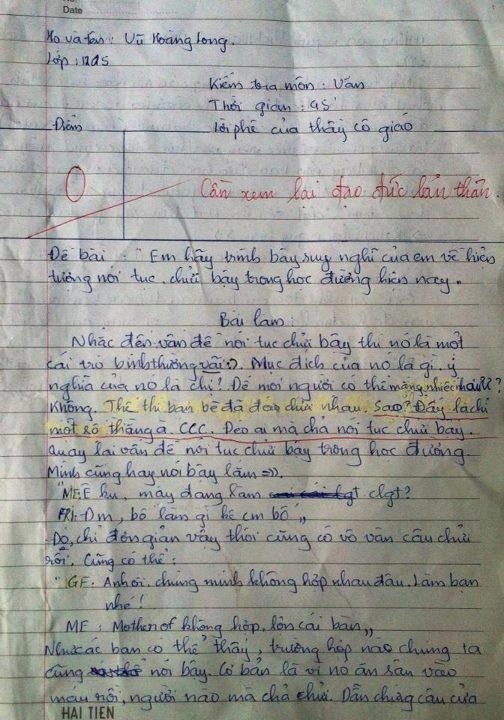 No
Date
Họ và tên : Vũ Hoàng Long.
Lớp : 12A5
Kiểm tra môn : Văn
Thời gian : 45'
Điểm
Lời phê của thầy cô giáo
0
Cần xem lại đạo đức bản thân
Đề bài : " Em hãy trình bày suy nghĩ của em về hiện
tượng nói tục, chửi bậy trong học đường hiện nay.
Bài làm:
Nhắc đến vấn đề nói tục chửi bậy thì nó là một
cái trò bình thường vãi :). Mục đích của nó là gì. ý
nghĩa của nó là chi! Để mọi người có thể mắng nhiếc nhau ư?
Không. Thế thì bạn bè đã đéo chửi nhau. Sao? Đấy là chỉ
một số thằng à. CCC. Đéo ai mà chả nói tục chửi bậy.
Quay lại vấn đề nói tục chửi bậy trong học đường
Mình cũng hay nói bậy lắm =)).
"ME: Ê ku, mày đang làm clgt?
FRI: Đm, bố làm gì kệ cm bố "
Đó, chỉ đơn giản vậy thôi cũng có vô vàn câu chửi
rồi. Cũng có thể :
"GF: Anh ơi, chúng mình không hợp nhau đâu. Làm bạn
nhé!
ME : Mother of không hợp, lồn cái bạn "
Như các bạn có thể thấy, trường hợp nào chúng ta
cũng nói bậy. Cơ bản là vì nó ăn sâu vào
máu rồi, người nào mà chả chửi. Dẫn chứng câu cửa
HAI TIEN